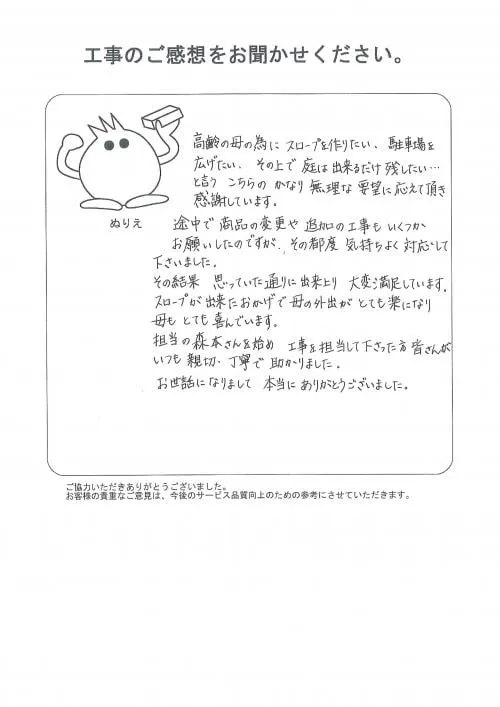 工事のご感想をお聞かせください。
高齢の母の為に スロープを作りたい、駐車場を
広げたい、その上で 庭は出来るだけ 残したい…
と言う こちらの かなり 無理な 要望に 応えて頂き
感謝しています。
ぬりえ
途中で 商品の変更や 追加の工事も いくつか
お願いしたのですが、その都度 気持ちよく 対応して
下さいました。
その結果 思っていた通りに出来上り 大変満足しています。
スロープが 出来たおかげで 母の外出が とても楽になり
母も とても 喜んでいます。
担当の 森本さんを始め 工事を担当して下さった方 皆さんが
いつも 親切・丁寧で 助かりました。
お世話になりまして 本当に ありがとうございました。
ご協力いただきありがとうございました。
お客様の貴重なご意見は、今後のサービス品質向上のための参考にさせていただきます。